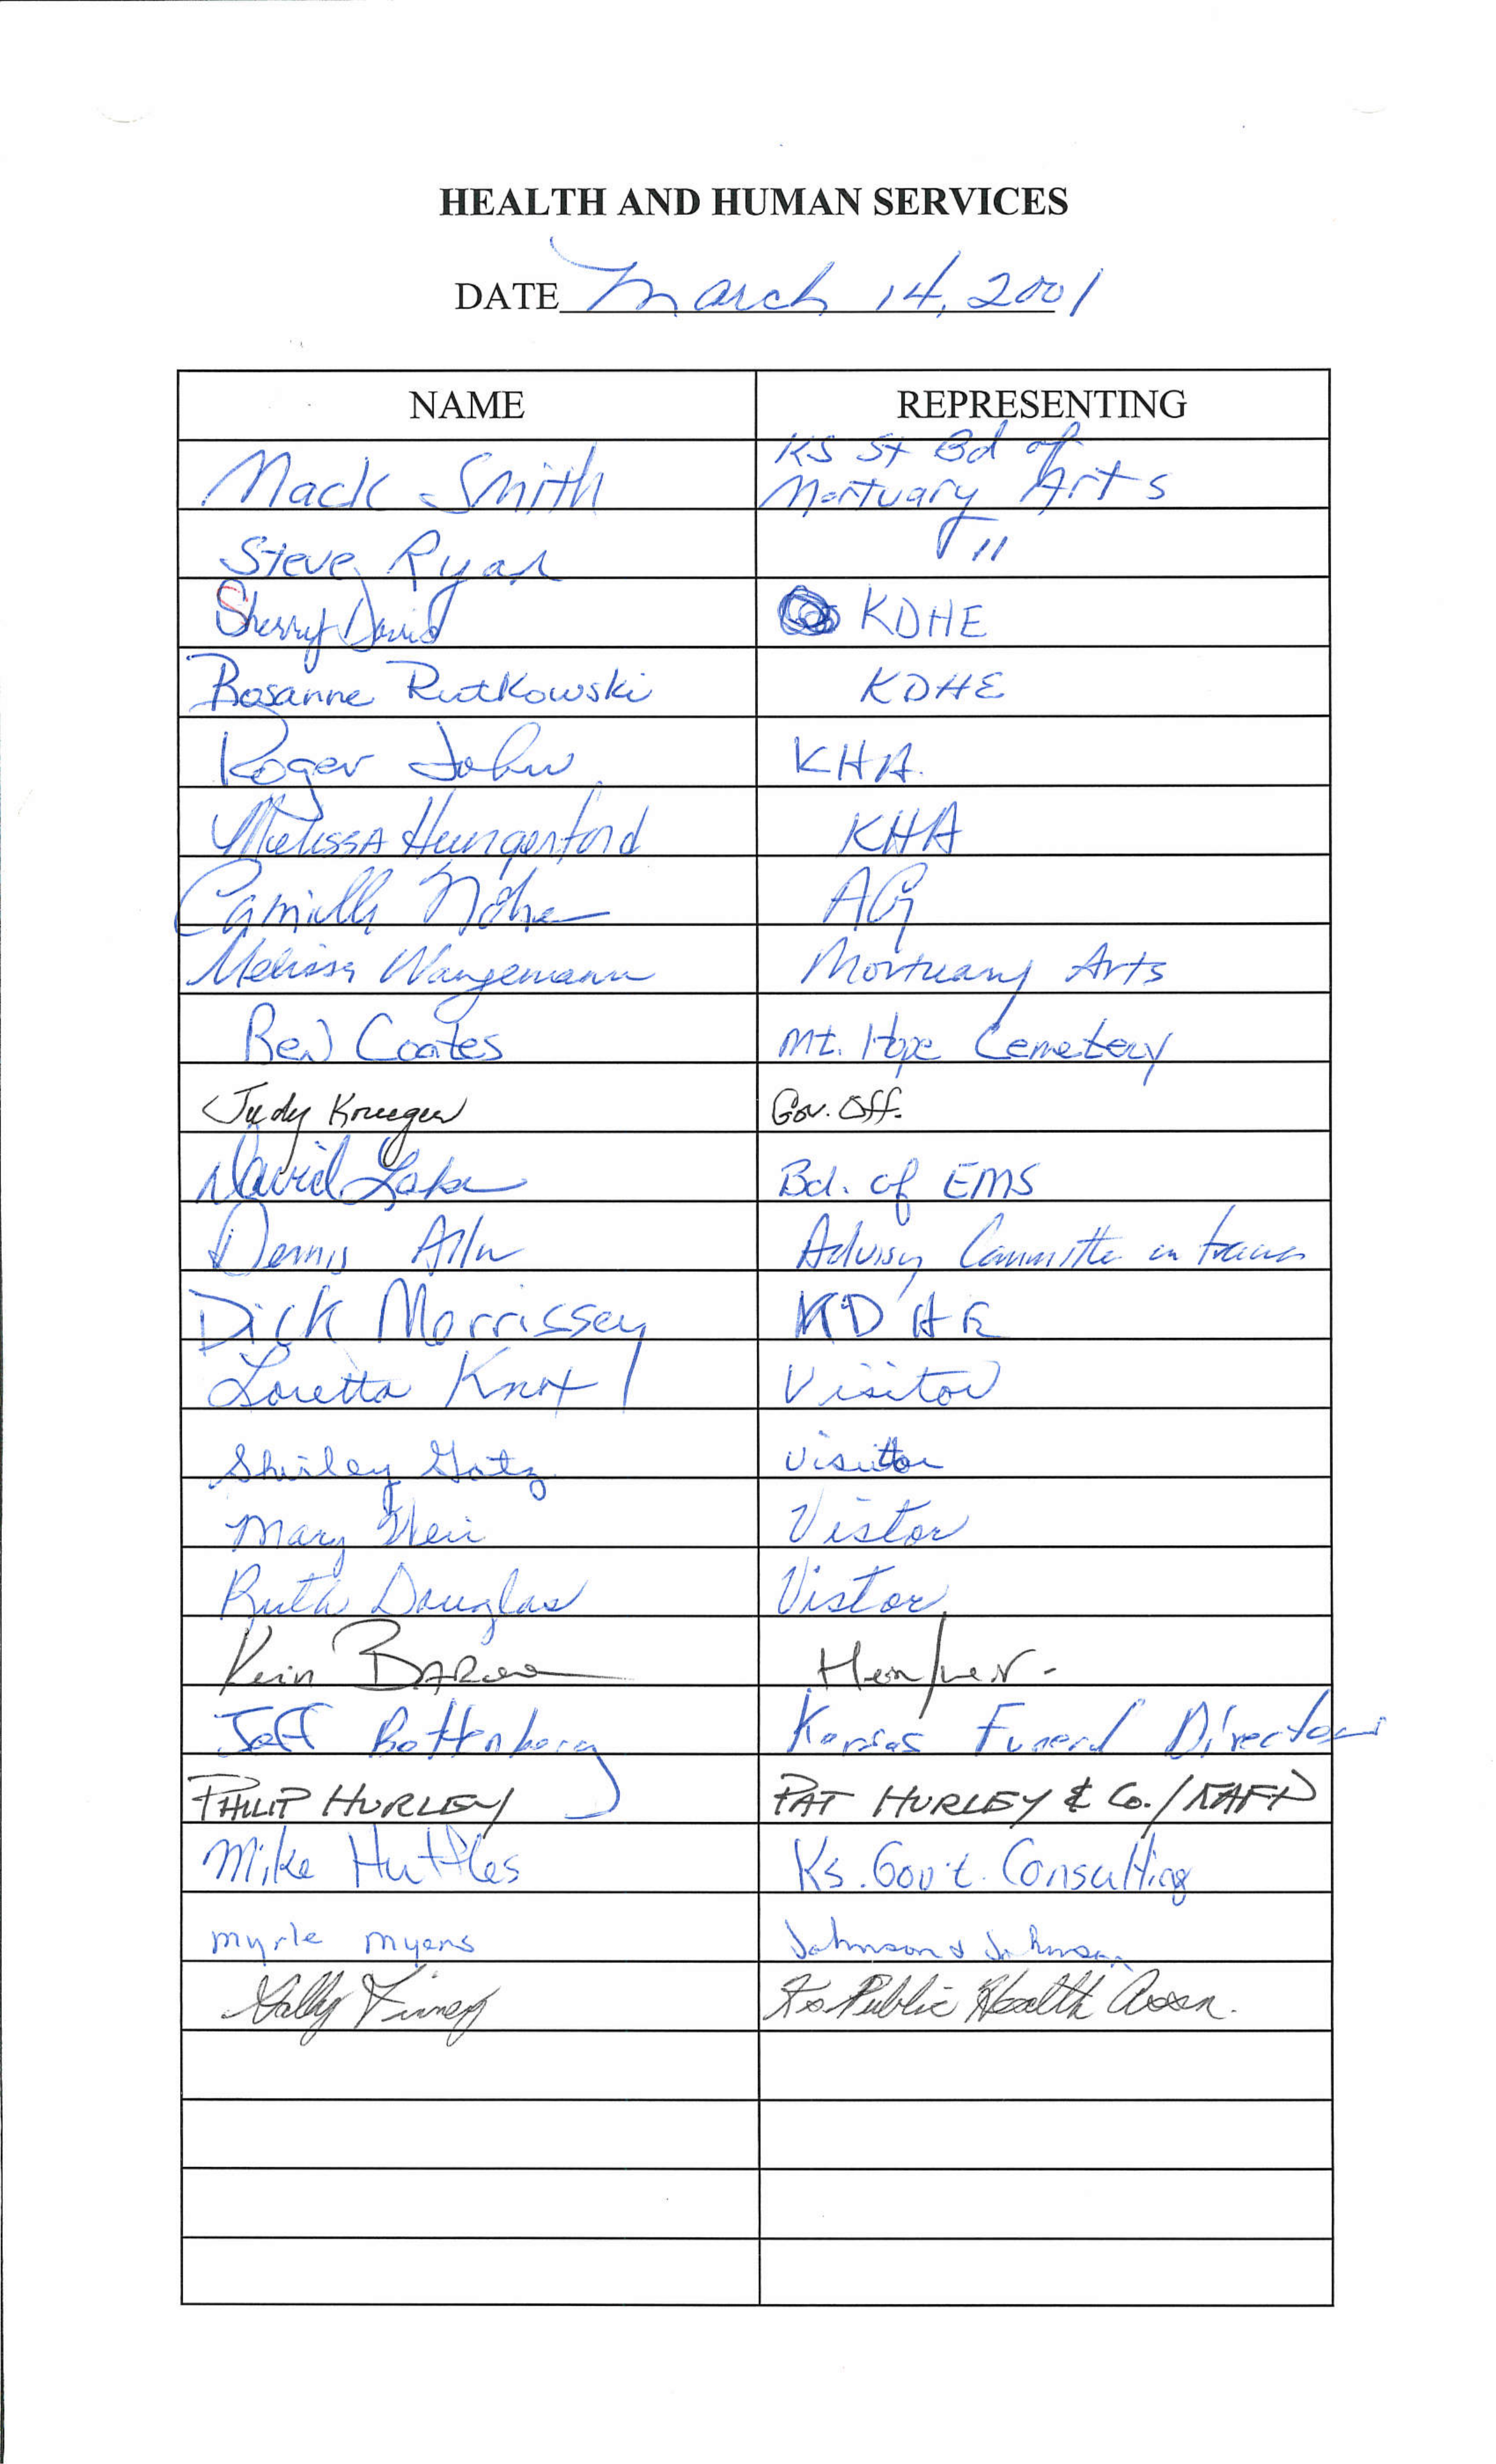 HEALTH AND HUMAN SERVICES
DATE March 14, 2001
NAME REPRESENTING
Mack Smith KS St Bd of Mortuary Arts
Steve Ryan "
Sherry David KDHE
Rosanne Rutkowski KDHE
Roger John KHA
Melissa Hungerford KHA
Camille Nohe AG
Melissa Wangemann Mortuary Arts
Coates Mt. Hope Cemetery
Judy Krueger Gov. Off.
David Lake Bd. of EMS
Dennis Allen Advisory Committee on Trauma
Dick Morrissey KDHE
Loretta Knox Visitor
Shirley Gatz Visitor
Mary Visitor
Ruth Douglas Vistor
Kevin Hein/Weir
Jeff Bottenberg Kansas Funeral Directors
PHILIP HURLEY PAT HURLEY & Co./KAFP
Mike Huttles Ks. Gov't. Consulting
Myrle Myers Johnson & Johnson
Sally Finney Ks Public Health Assn.